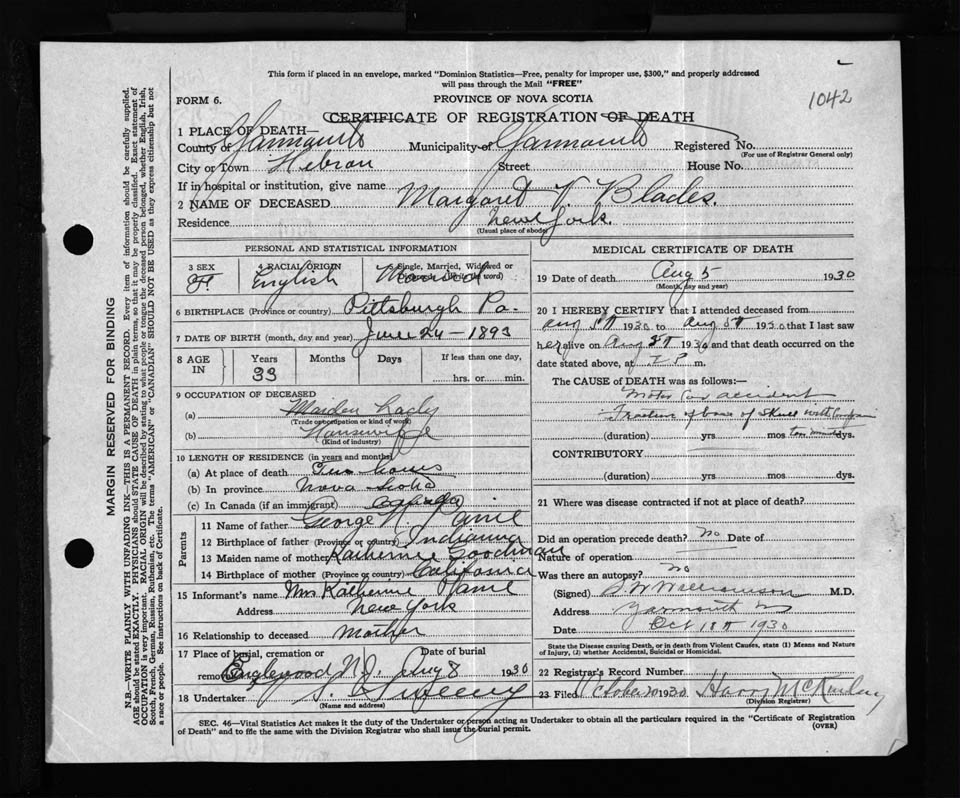 1042
This form if placed in an envelope, marked "Dominion Statistics—Free, penalty for improper use, $300," and properly addressed
will pass through the Mail "FREE"
FORM 6.
PROVINCE OF NOVA SCOTIA
CERTIFICATE OF REGISTRATION OF DEATH
1 PLACE OF DEATH—
County of Yarmouth Municipality of Yarmouth Registered No.
(For use of Registrar General only)
City or Town Hebron Street House No.
If in hospital or institution, give name
2 NAME OF DECEASED Margaret V. Blades.
Residence New York.
(Usual place of abode)
PERSONAL AND STATISTICAL INFORMATION
3 SEX 4 RACIAL ORIGIN 5 Single, Married, Widowed or
F. English Married
6 BIRTHPLACE (Province or country) Pittsburgh Pa.
7 DATE OF BIRTH (month, day and year) June 24 - 1893
8 AGE IN Years Months Days If less than one day,
33 hrs. or min.
9 OCCUPATION OF DECEASED
(a) Maiden Lady
(Trade or occupation or kind of work)
(b) Housewife
(Kind of industry)
10 LENGTH OF RESIDENCE (in years and months)
(a) At place of death hours
(b) In province Nova Scotia
(c) In Canada (if an immigrant)
Parents
11 Name of father George
12 Birthplace of father (Province or country) Indianna
13 Maiden name of mother Katherine Goodman
14 Birthplace of mother (Province or country) California
15 Informant's name Mrs Katherine
Address New York
16 Relationship to deceased Mother
17 Place of burial, cremation or Date of burial
removal Englewood N.J. Aug 8 1930
18 Undertaker Sweeny
(Name and address)
MEDICAL CERTIFICATE OF DEATH
19 Date of death Aug 5 1930
(Month, day and year)
20 I HEREBY CERTIFY that I attended deceased from
Aug 1930 to Aug 1930 that I last saw
her alive on Aug 1930 and that death occurred on the
date stated above, at P m.
The CAUSE OF DEATH was as follows:—
Motor Car accident
Fracture of base of Skull with
(duration) yrs mos dys.
CONTRIBUTORY
(duration) yrs mos dys.
21 Where was disease contracted if not at place of death?
Did an operation precede death? No Date of
Nature of operation
Was there an autopsy? No
(Signed) Williamson M.D.
Address Yarmouth
Date Oct 1930
State the Disease causing Death, or in death from Violent Causes, state (1) Means and
Nature of Injury, (2) whether Accidental, Suicidal or Homicidal.
22 Registrar's Record Number
23 Filed 1930 Harry
(Division Registrar)
SEC. 46—Vital Statistics Act makes it the duty of the Undertaker or person acting as Undertaker to obtain all the particulars required in the "Certificate of Registration
of Death" and to file the same with the Division Registrar who shall issue the burial permit.
(OVER)
MARGIN RESERVED FOR BINDING
N.B.—WRITE PLAINLY WITH UNFADING INK—THIS IS A PERMANENT RECORD. Every item of information should be carefully supplied.
AGE should be stated EXACTLY. PHYSICIANS should STATE CAUSE OF DEATH in plain terms, so that it may be properly classified. Exact statement of
OCCUPATION is very important. RACIAL ORIGIN will be described by stating to what people or tongue the deceased person belonged, whether English, Irish,
Scotch, French, German, Russian, Ruthenian, etc. The terms "AMERICAN" or "CANADIAN" SHOULD NOT BE USED as they express citizenship but not
a race or people. See instructions on back of Certificate.